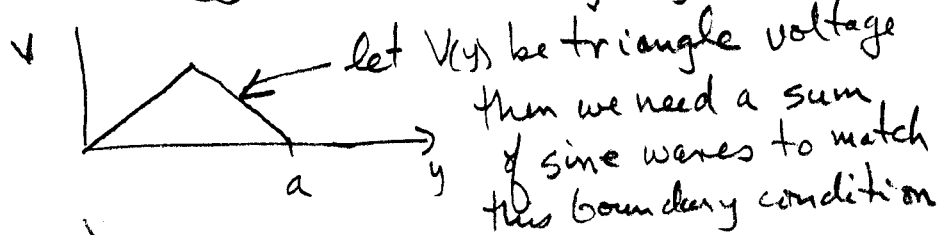 V
let V(y) be triangle voltage
then we need a sum
of sine waves to match
this boundary condition
a
y